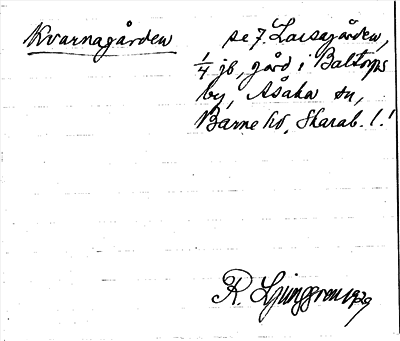 Kvarnagården
se 7. Larsgården,
1/4 jb, gård i Baltorps
by, Åsaka sn,
Barne hd, Skarab. l.!
R. Ljunggren 1929